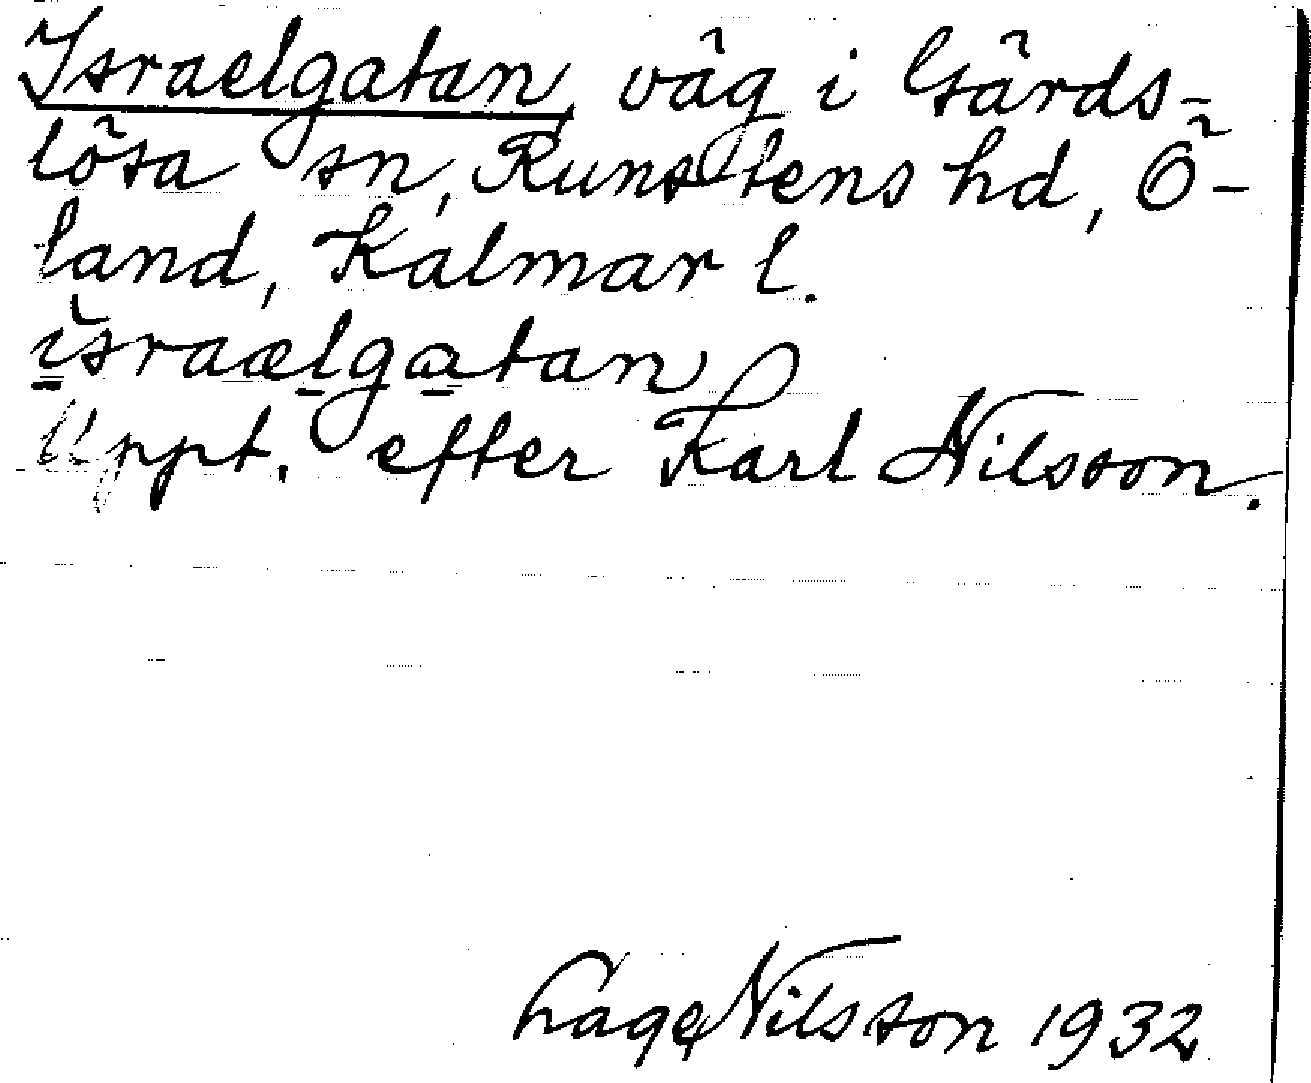 Israelgatan, väg i Gärds-
lösa sn, Runstens hd, Ö-
land, Kalmar l.
israælgatan
Uppt. efter Karl Nilsson.
Nilsson 1932